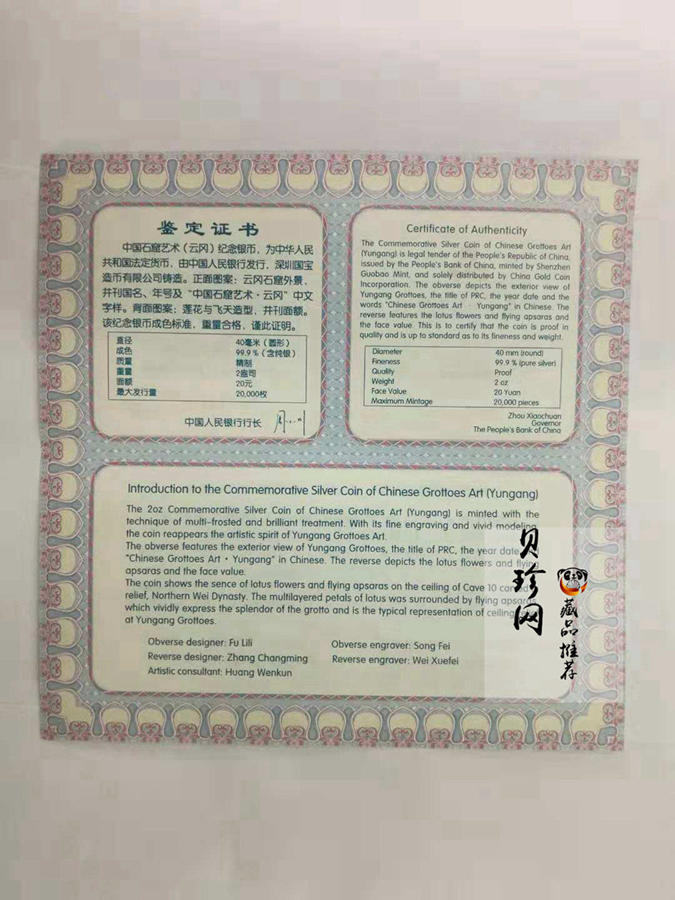 鉴定证书
中国石窟艺术（云冈）纪念银币，为中华人民
共和国法定货币，由中国人民银行发行，深圳国宝
造币有限公司铸造。正面图案：云冈石窟外景，
并刊国名、年号及“中国石窟艺术·云冈”中文
字样。背面图案：莲花与飞天造型，并刊面额。
该纪念银币成色标准，重量合格，谨此证明。
直径 40毫米（圆形）
成色 99.9%（含纯银）
质量 精制
重量 2盎司
面额 20元
最大发行量 20,000枚
中国人民银行行长
Certificate of Authenticity
The Commemorative Silver Coin of Chinese Grottoes Art
(Yungang) is legal tender of the People's Republic of China,
issued by the People's Bank of China, minted by Shenzhen
Guobao Mint, and solely distributed by China Gold Coin
Incorporation. The obverse depicts the exterior view of
Yungang Grottoes, the title of PRC, the year date and the
words "Chinese Grottoes Art · Yungang" in Chinese. The
reverse features the lotus flowers and flying apsaras and
the face value. This is to certify that the coin is proof in
quality and is up to standard as to its fineness and weight.
Diameter 40 mm (round)
Fineness 99.9 % (pure silver)
Quality Proof
Weight 2 oz
Face Value 20 Yuan
Maximum Mintage 20,000 pieces
Zhou Xiaochuan
Governor
The People's Bank of China
Introduction to the Commemorative Silver Coin of Chinese Grottoes Art (Yungang)
The 2oz Commemorative Silver Coin of Chinese Grottoes Art (Yungang) is minted with the
technique of multi-frosted and brilliant treatment. With its fine engraving and vivid modeling,
the coin reappears the artistic spirit of Yungang Grottoes Art.
The obverse features the exterior view of Yungang Grottoes, the title of PRC, the year date
"Chinese Grottoes Art · Yungang" in Chinese. The reverse depicts the lotus flowers and flying
apsaras and the face value.
The coin shows the sence of lotus flowers and flying apsaras on the ceiling of Cave 10 carved
relief, Northern Wei Dynasty. The multilayered petals of lotus was surrounded by flying apsaras
which vividly express the splendor of the grotto and is the typical representation of ceiling
at Yungang Grottoes.
Obverse designer: Fu Lili Obverse engraver: Song Fei
Reverse designer: Zhang Changming Reverse engraver: Wei Xuefei
Artistic consultant: Huang Wenkun
贝珍网
藏品推荐